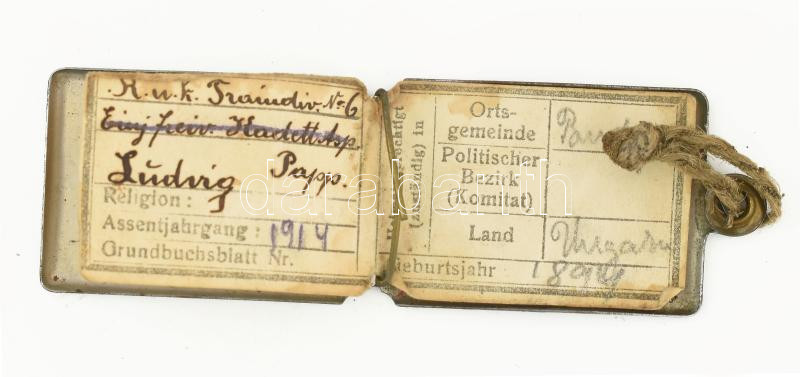 K. u. k. Traindiv. No 6
Einj. freiw. Kadett Asp.
Ludvig Papp.
Religion:
Assentjahrgang: 1914
Grundbuchsblatt Nr.
(zuständig) in
Orts-
gemeinde
Politischer
Bezirk
(Komitat)
Land Ungarn
Geburtsjahr 1894
darabanth